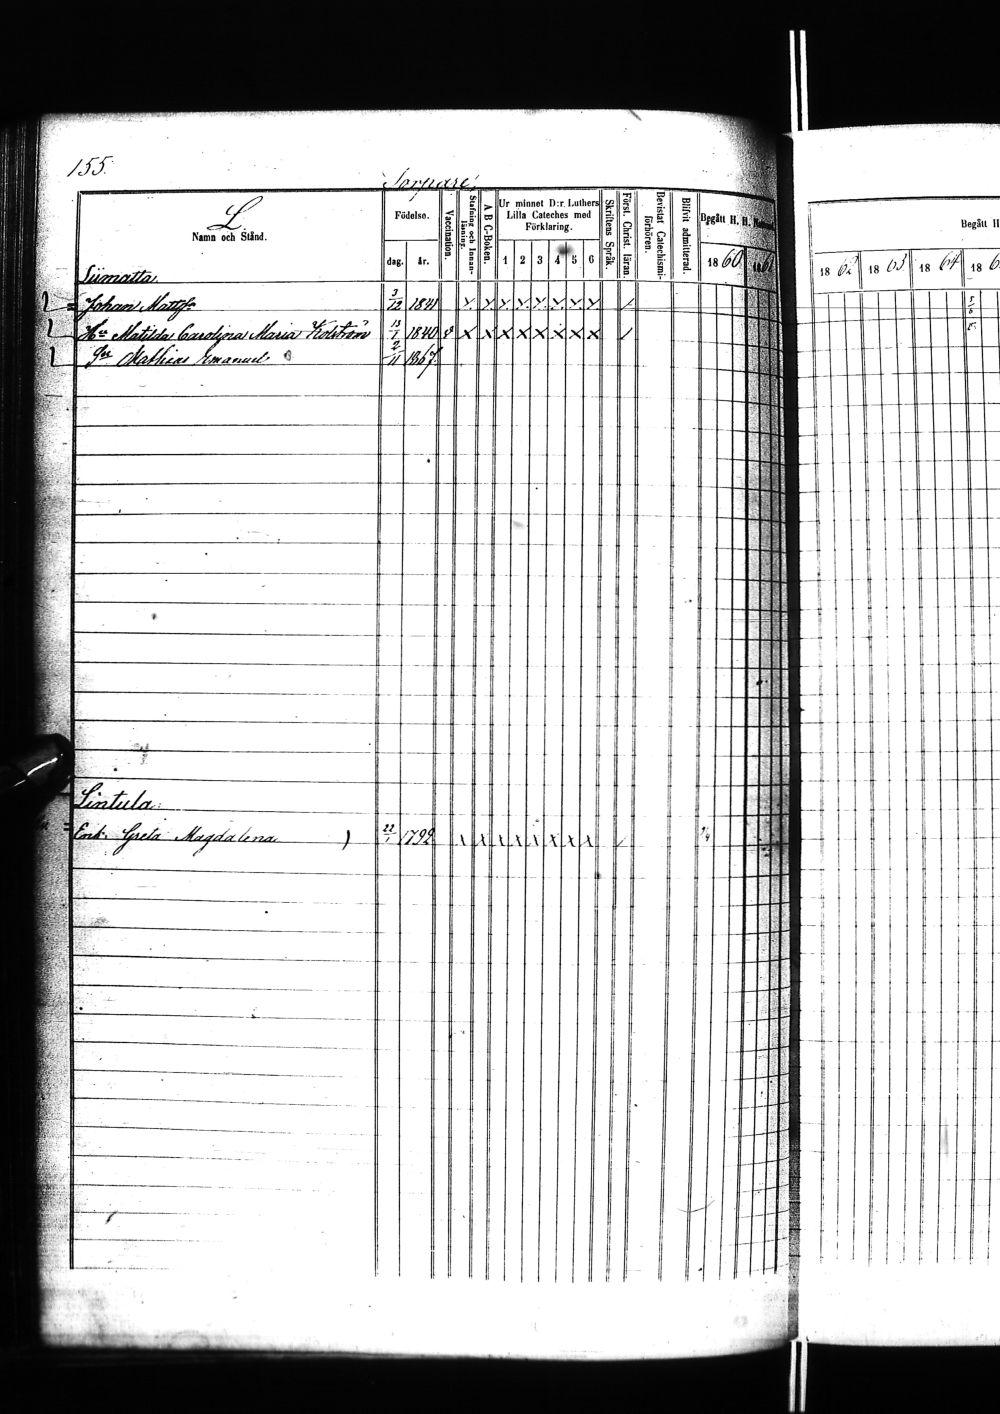 155.
Torpare
L.
Namn och Stånd.
Födelse.
dag. år.
Vaccination.
Stafning och Innanläsning.
A B C-Boken.
Ur minnet D:r Luthers Lilla Cateches med Förklaring.
1 2 3 4 5 6
Skriftens Språk.
Först. Christ. läran.
Bevistat Catechismiförhören.
Blifvit admitterad.
Begått H. H.
1860 1861
Begått H
1862 1863 1864 186
Liimatta
Johan Mattss 3/12 1841 x x x x x x x x /
Hu Matilda Carolina Maria Kolström 13/1 1840 v x x x x x x x x /
Gss Mathias Emanuel 2/11 1867.
Lintula
Enk. Greta Magdalena 22/1 1792 x x x x x x x x /